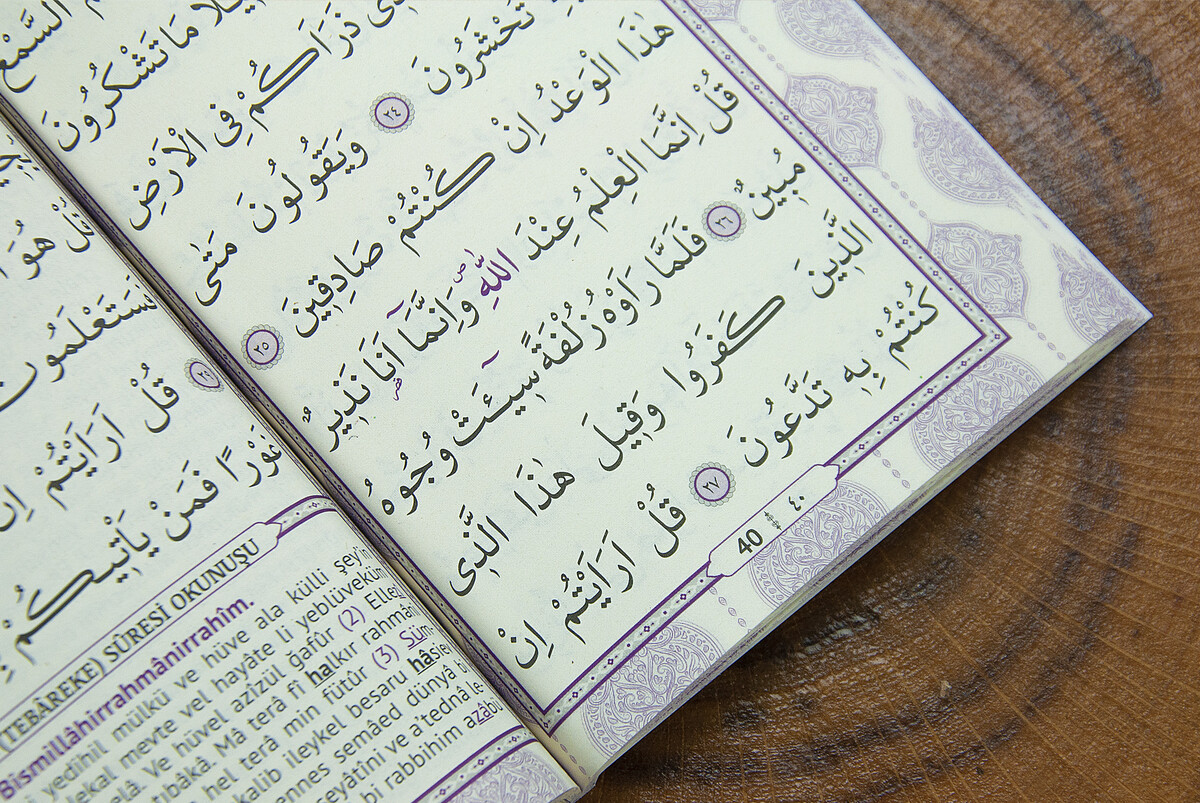 السَّمْعَ
مَا تَشْكُرُونَ
ذَرَاَكُمْ فِى الْاَرْضِ
تُحْشَرُونَ ٢٤ وَيَقُولُونَ مَتٰى
هٰذَا الْوَعْدُ اِنْ كُنْتُمْ صَادِقِينَ ٢٥
قُلْ اِنَّمَا الْعِلْمُ عِنْدَ اللّٰهِ ص وَاِنَّمَٓا اَنَا نَذِيرٌ
مُبِينٌ ٢٦ فَلَمَّا رَاَوْهُ زُلْفَةً سِيٓـَٔتْ وُجُوهُ
الَّذِينَ كَفَرُوا وَقِيلَ هٰذَا الَّذِى
كُنْتُمْ بِهِ تَدَّعُونَ ٢٧ قُلْ اَرَاَيْتُمْ اِنْ
40 ٤٠
قُلْ هُوَ
فَسَتَعْلَمُونَ
قُلْ اَرَاَيْتُمْ اِنْ
غَوْرًا فَمَنْ يَأْتِيكُمْ
(TEBÂREKE) SÛRESİ OKUNUŞU
Bismillâhirrahmânirrahîm.
yedihil mülkü ve hüve ala külli şey'in
mevte vel hayâte li yeblüveküm
Ve hüvel azîzül ğafûr (2) Elle
Mâ terâ fî halkır rahmâni
hel terâ min fütûr (3) Süm
ileykel besaru hâsie
semâed dünyâ bi
ve a'tednâ le
bi rabbihim azâbü